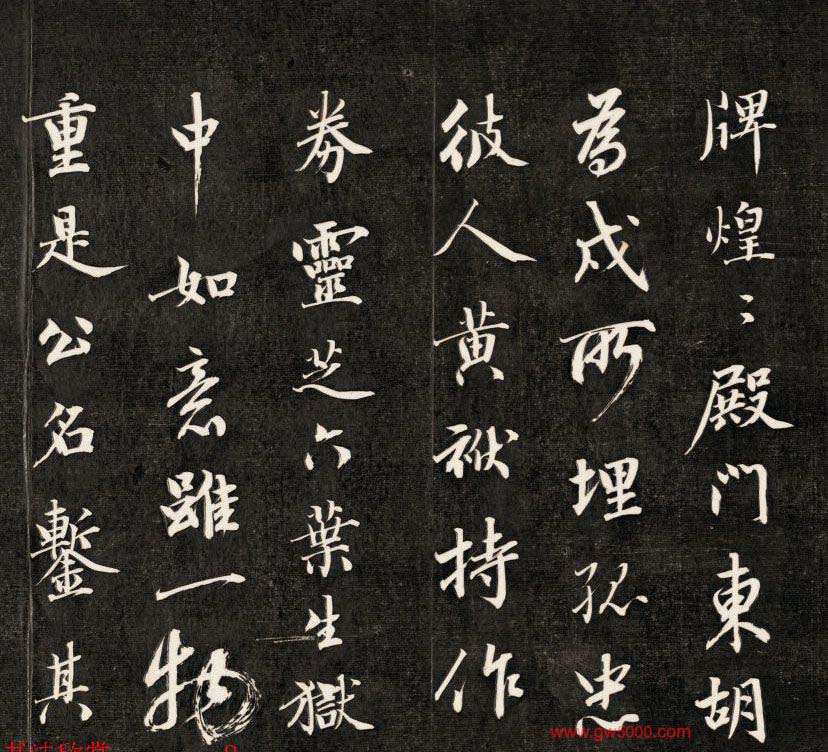 牌煌〻殿門東胡
為戍所埋孤忠
彼人黄袱持作
券靈芝六葉生獄
中如意雖一物
重是公名鏨其
www.gw5000.com